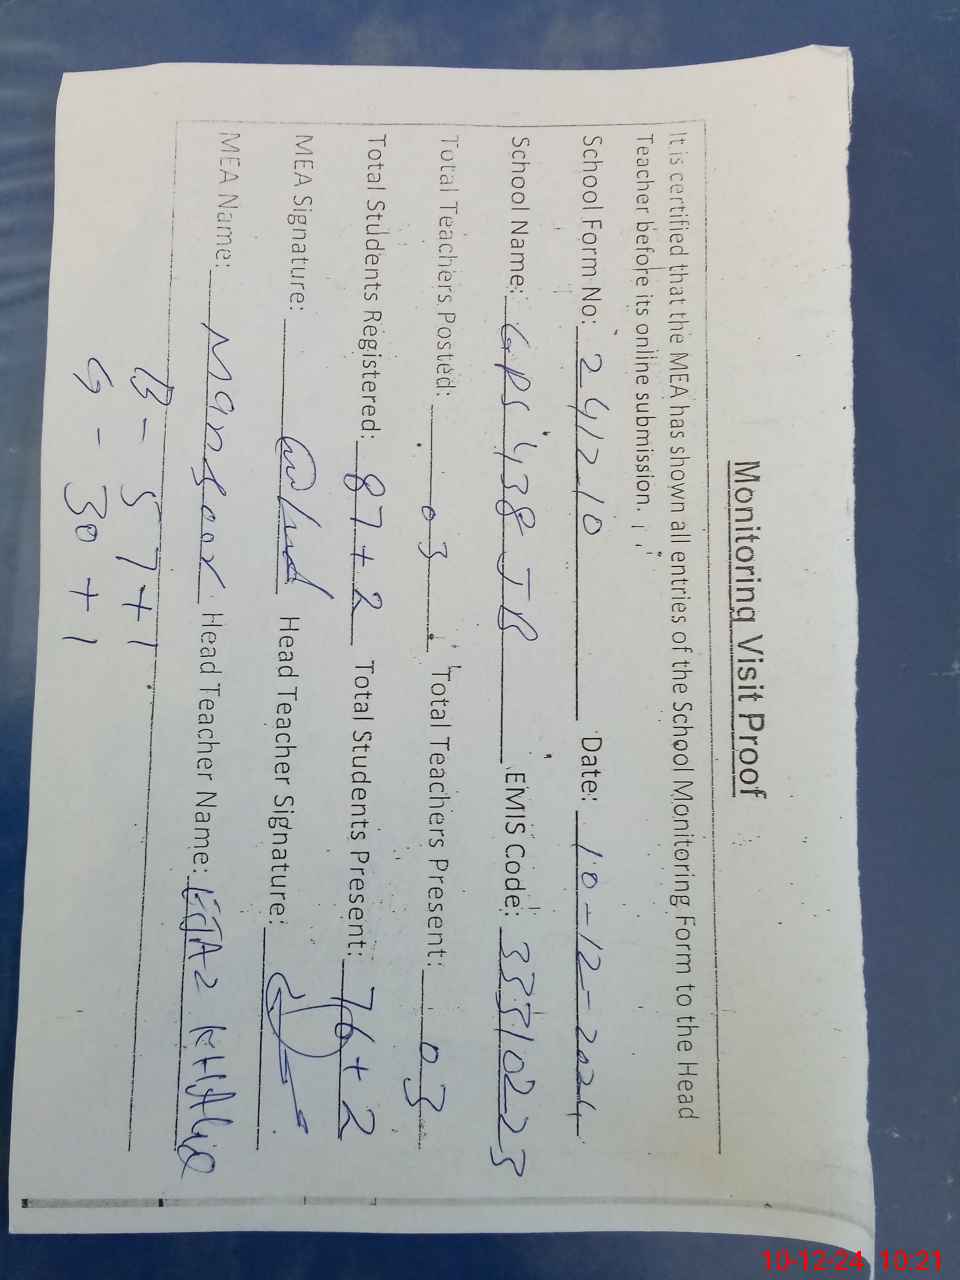 Monitoring Visit Proof
It is certified that the MEA has shown all entries of the School Monitoring Form to the Head
Teacher before its online submission.
School Form No: 241210 Date: 10-12-2024
School Name: GPS 438 JB EMIS Code: 33310223
Total Teachers Posted: 03 Total Teachers Present: 03
Total Students Registered: 87+2 Total Students Present: 76+2
MEA Signature: Head Teacher Signature:
MEA Name: Mansoor Head Teacher Name: EJAZ KHALID
B - 57+1
G - 30+1
10-12-24 10:21